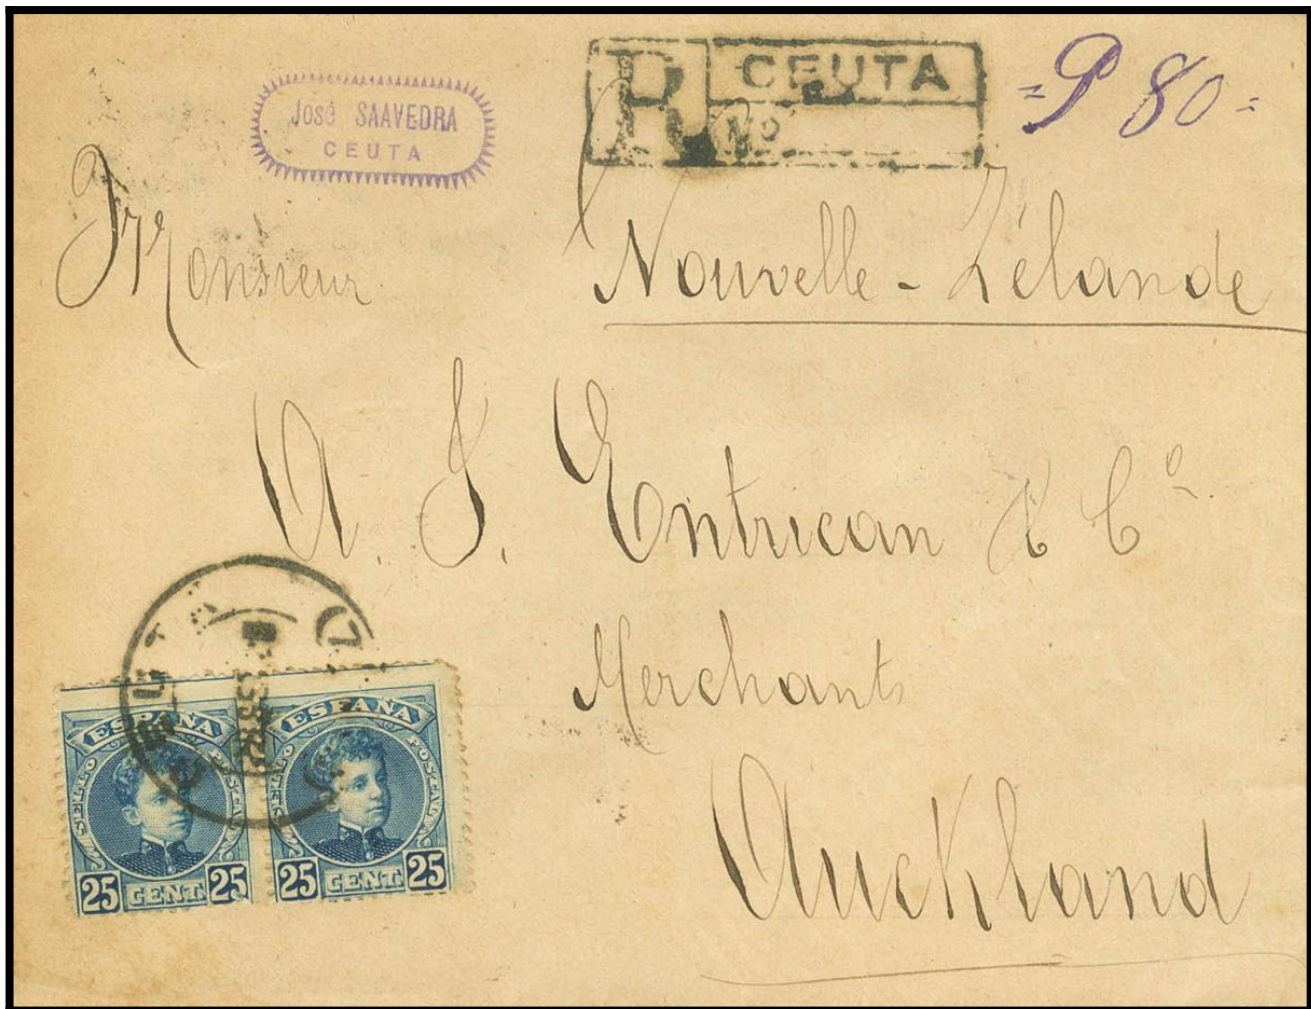 José SAAVEDRA
CEUTA
R CEUTA
Nº
=P 80=
Monsieur
Nouvelle-Zélande
A. J. Entrican & Cº
Merchants
Auckland
CEUTA
ESPAÑA
SELLO POSTAL
25 CENT. 25
ESPAÑA
SELLO POSTAL
25 CENT. 25